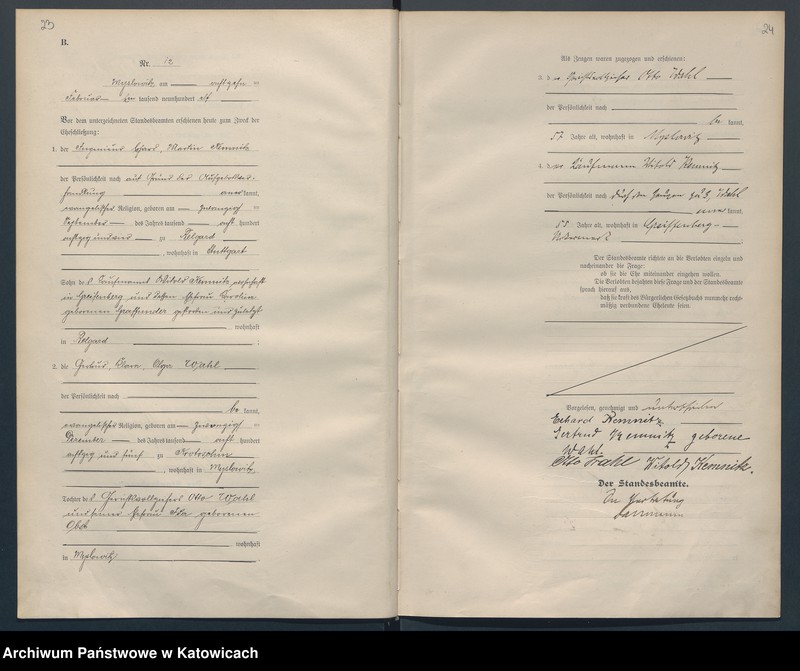 23
B.
Nr. 12
Myslowitz am achtzehn
Februar tausend neunhundert elf
Vor dem unterzeichneten Standesbeamten erschienen heute zum Zweck der
Eheschließung:
1. der Ingenieur Martin Kemnitz
der Persönlichkeit nach auf Grund der Aufgebotsver-
handlung anerkannt,
evangelischer Religion, geboren am zwanzigsten
September des Jahres tausend acht hundert
achtzig und zu Belgard
, wohnhaft in Stuttgart
Sohn des Kaufmanns Witold Kemnitz, wohnhaft
in Greifenberg und dessen Ehefrau
geborenen gestorben und zuletzt
wohnhaft
in Belgard
2. die Gertrud, Klara, Olga Wahl
der Persönlichkeit nach
be kannt,
evangelischer Religion, geboren am zwanzigsten
Dezember des Jahres tausend acht hundert
achtzig und fünf zu Krotoschin
, wohnhaft in Myslowitz
Tochter des Gerichtsvollziehers Otto Wahl
und seiner Ehefrau Ida geborenen
wohnhaft
in Myslowitz
24
Als Zeugen waren zugezogen und erschienen:
3. der Gerichtsvollzieher Otto Wahl
der Persönlichkeit nach
be kannt,
57 Jahre alt, wohnhaft in Myslowitz
4. der Kaufmann Witold Kemnitz
der Persönlichkeit nach durch den Zeugen Wahl
anerkannt,
55 Jahre alt, wohnhaft in Greiffenberg
Der Standesbeamte richtete an die Verlobten einzeln und
nacheinander die Frage:
ob sie die Ehe miteinander eingehen wollen.
Die Verlobten bejahten diese Frage und der Standesbeamte
sprach hierauf aus,
daß sie kraft des Bürgerlichen Gesetzbuchs nunmehr recht-
mäßig verbundene Eheleute seien.
Vorgelesen, genehmigt und unterschrieben
Erhard Kemnitz
Gertrud Kemnitz geborene
Wahl.
Otto Wahl Witold Kemnitz.
Der Standesbeamte.
In Vertretung
Archiwum Państwowe w Katowicach